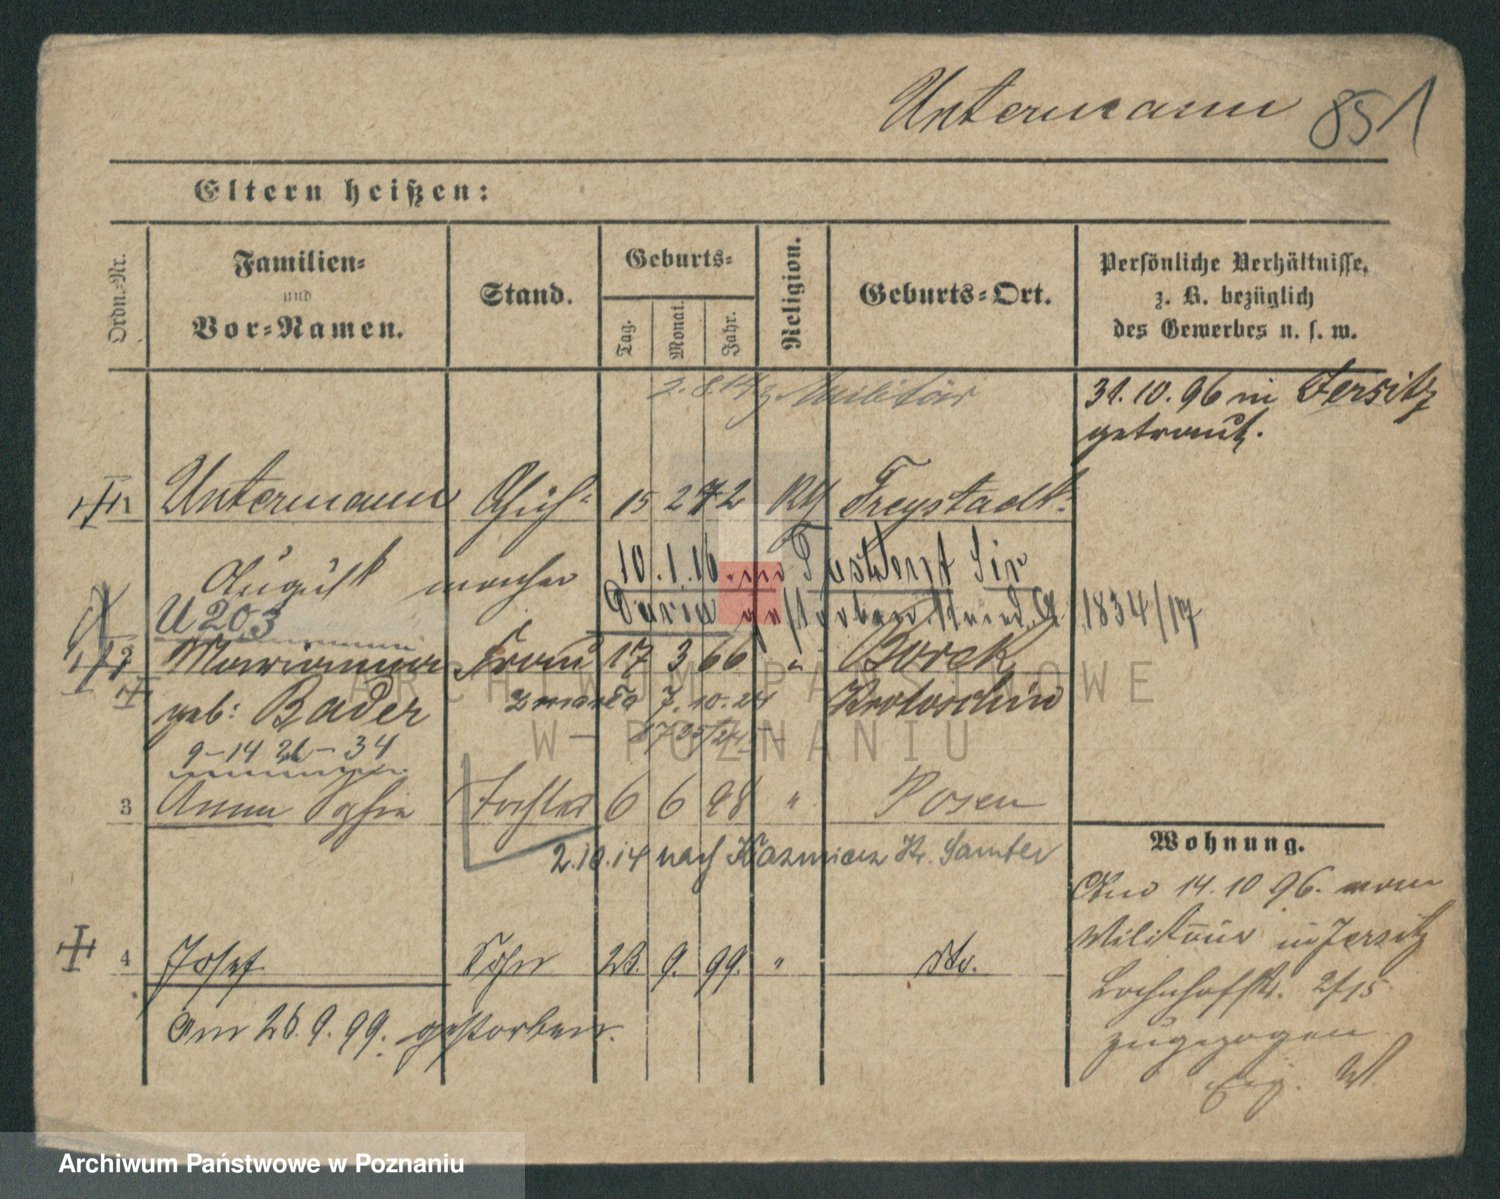 Untermann 851
Eltern heißen:
Ordn.-Nr.
Familien-
und
Vor-Namen.
Stand.
Geburts-
Tag.
Monat.
Jahr.
Religion.
Geburts-Ort.
Persönliche Verhältnisse,
z. B. bezüglich
des Gewerbes u. s. w.
2.8.14 z. Militär
31.10.96 in Jersitz
getraut.
1 Untermann Schuh- 15 2 72 Kth Freystadt
August macher 10.1.16
gestorben 1834/17
U 203
2 Marianna Frau 17 3 66 " Borek
geb: Bader zmarła 7.10.24 Krotoschin
9-14 21-34
3 Anna Sophie Tochter 6 6 98 " Posen
2.10.14 nach Kazmierz Kr. Samter
4 Josef Sohn 23. 9. 99. " do.
Am 26.9.99. gestorben.
Wohnung.
Am 14.10 96. vom
Militair in Jersitz
2/15
zugezogen
ARCHIWUM PAŃSTWOWE
W POZNANIU
Archiwum Państwowe w Poznaniu